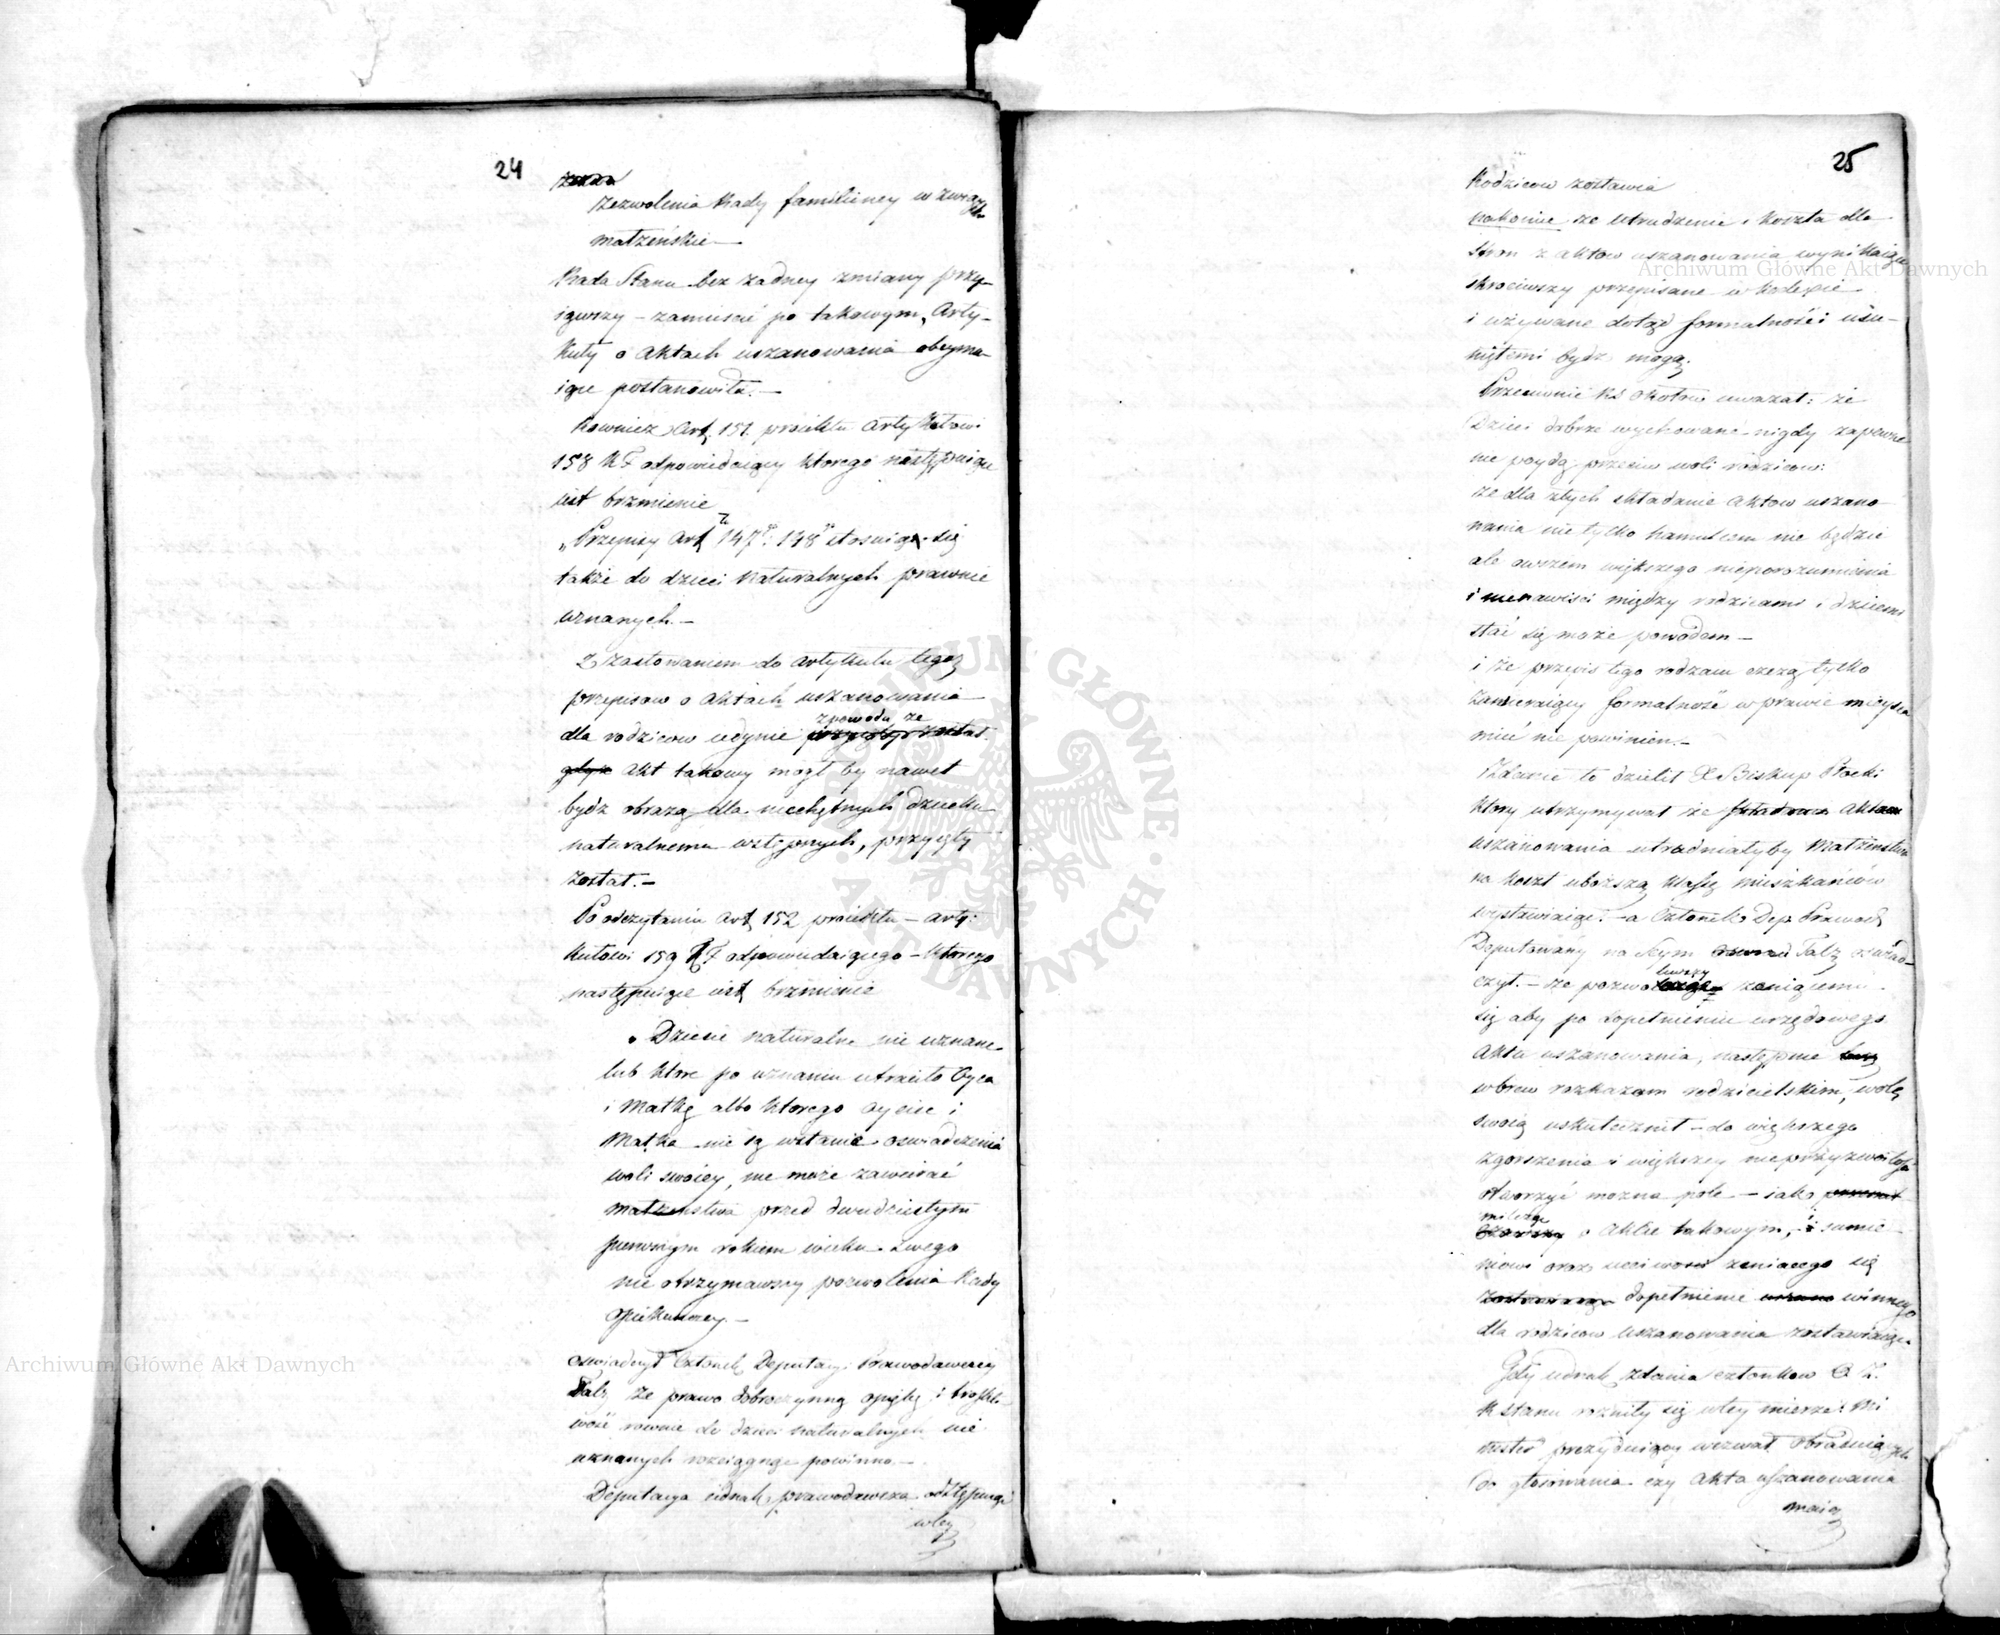 24
zezwolenia Rady familiiney w związki
małżeńskie —
Rada Stanu bez żadney zmiany przy-
iąwszy — zamieścić po takowym, Arty-
kuły o aktach uszanowania obeyma-
iące postanowiła. —
Rownież Art. 151 proiektu Artykułowi
158 K F odpowiedaiący ktorego następuiące
iest brzmienie
„Przepisy Art 147º: 148º stosuią się
także do dzieci naturalnych prawnie
uznanych. —
z zastosowaniem do artykułu tegoż
przepisow o aktach uszanowania
z powodu że
dla rodzicow iedynie przyięty został.
gdyż akt takowy mogł by nawet
bydź obrazą dla niechętnych dziecku
naturalnemu wstępnych, przyięty
został. —
Po odczytaniu Art 152 proiektu — arty:
kułowi 159 K F odpowiedaiącego — ktorego
następuiące iest brzmienie
„Dziecie naturalne nie uznane
lub ktore po uznaniu utraciło Oyca
i Matkę albo ktorego Oyciec i
Matka nie są wstanie oswiadczenia
woli swoiey, nie może zawierać
małżenstwa przed dwudziestym
pierwszym rokiem wieku swego
nie otrzymawszy pozwolenia Rady
Opiekunczey. —
oswiadczył Członek Deputacyi Prawodawczey
Falz że prawo dobroczynną opiekę i troskli-
wość rownie do dzieci naturalnych nie
uznanych rozciągać powinno. —
Deputacya iednak prawodawcza odstępuiąc
wtey
25
Rodzicow zostawia
nakoniec że utrudzenie i koszta dla
stron z aktow uszanowania wynikaiące
skrociwszy przepisane w kodexie
i używane dotąd formalności usu-
niętemi bydź mogą.
Przeciwnie KS uważał: że
Dzieci dobrze wychowane nigdy zapewne
nie poydą przeciw woli rodzicow:
że dla złych składanie aktow uszano-
wania nie tylko hamulcem nie będzie
ale owszem większego nieporozumienia
i nienawisci między rodzicami i dziecmi
stać się może powodem —
i że przepis tego rodzaiu czczą tylko
zawieraiący formalność w prawie mieysca
mieć nie powinien. —
Zdanie to dzielił X Biskup Płocki
ktory utrzymywał że składanie aktow
uszanowania utrudniałyby Małżeństwa
na koszt uboższą klassę mieszkańców
wystawiaiąc: — a Członek Dep Prawod
Deputowany na Seym Falz oswiad-
czył. — że pozwoliwszy żeniącemu
się aby po dopełnieniu urzędowego
aktu uszanowania, następnie
wbrew rozkazom rodzicielskim, wolę
swoią uskutecznił — do większego
zgorszenia i większey nieprzyzwoitości
otworzyć można pole — iako
milcząc
o akcie takowym, i sumie-
niowi oraz uczciwosci żeniącego się
dopełnienie winnego
dla rodzicow uszanowania zostawiaiąc
Gdy iednak zdania członkow
R Stanu rożniły się wtey mierze: Mi
nister prezyduiący wezwał obraduiących
do głosowania czy akta uszanowania
maią